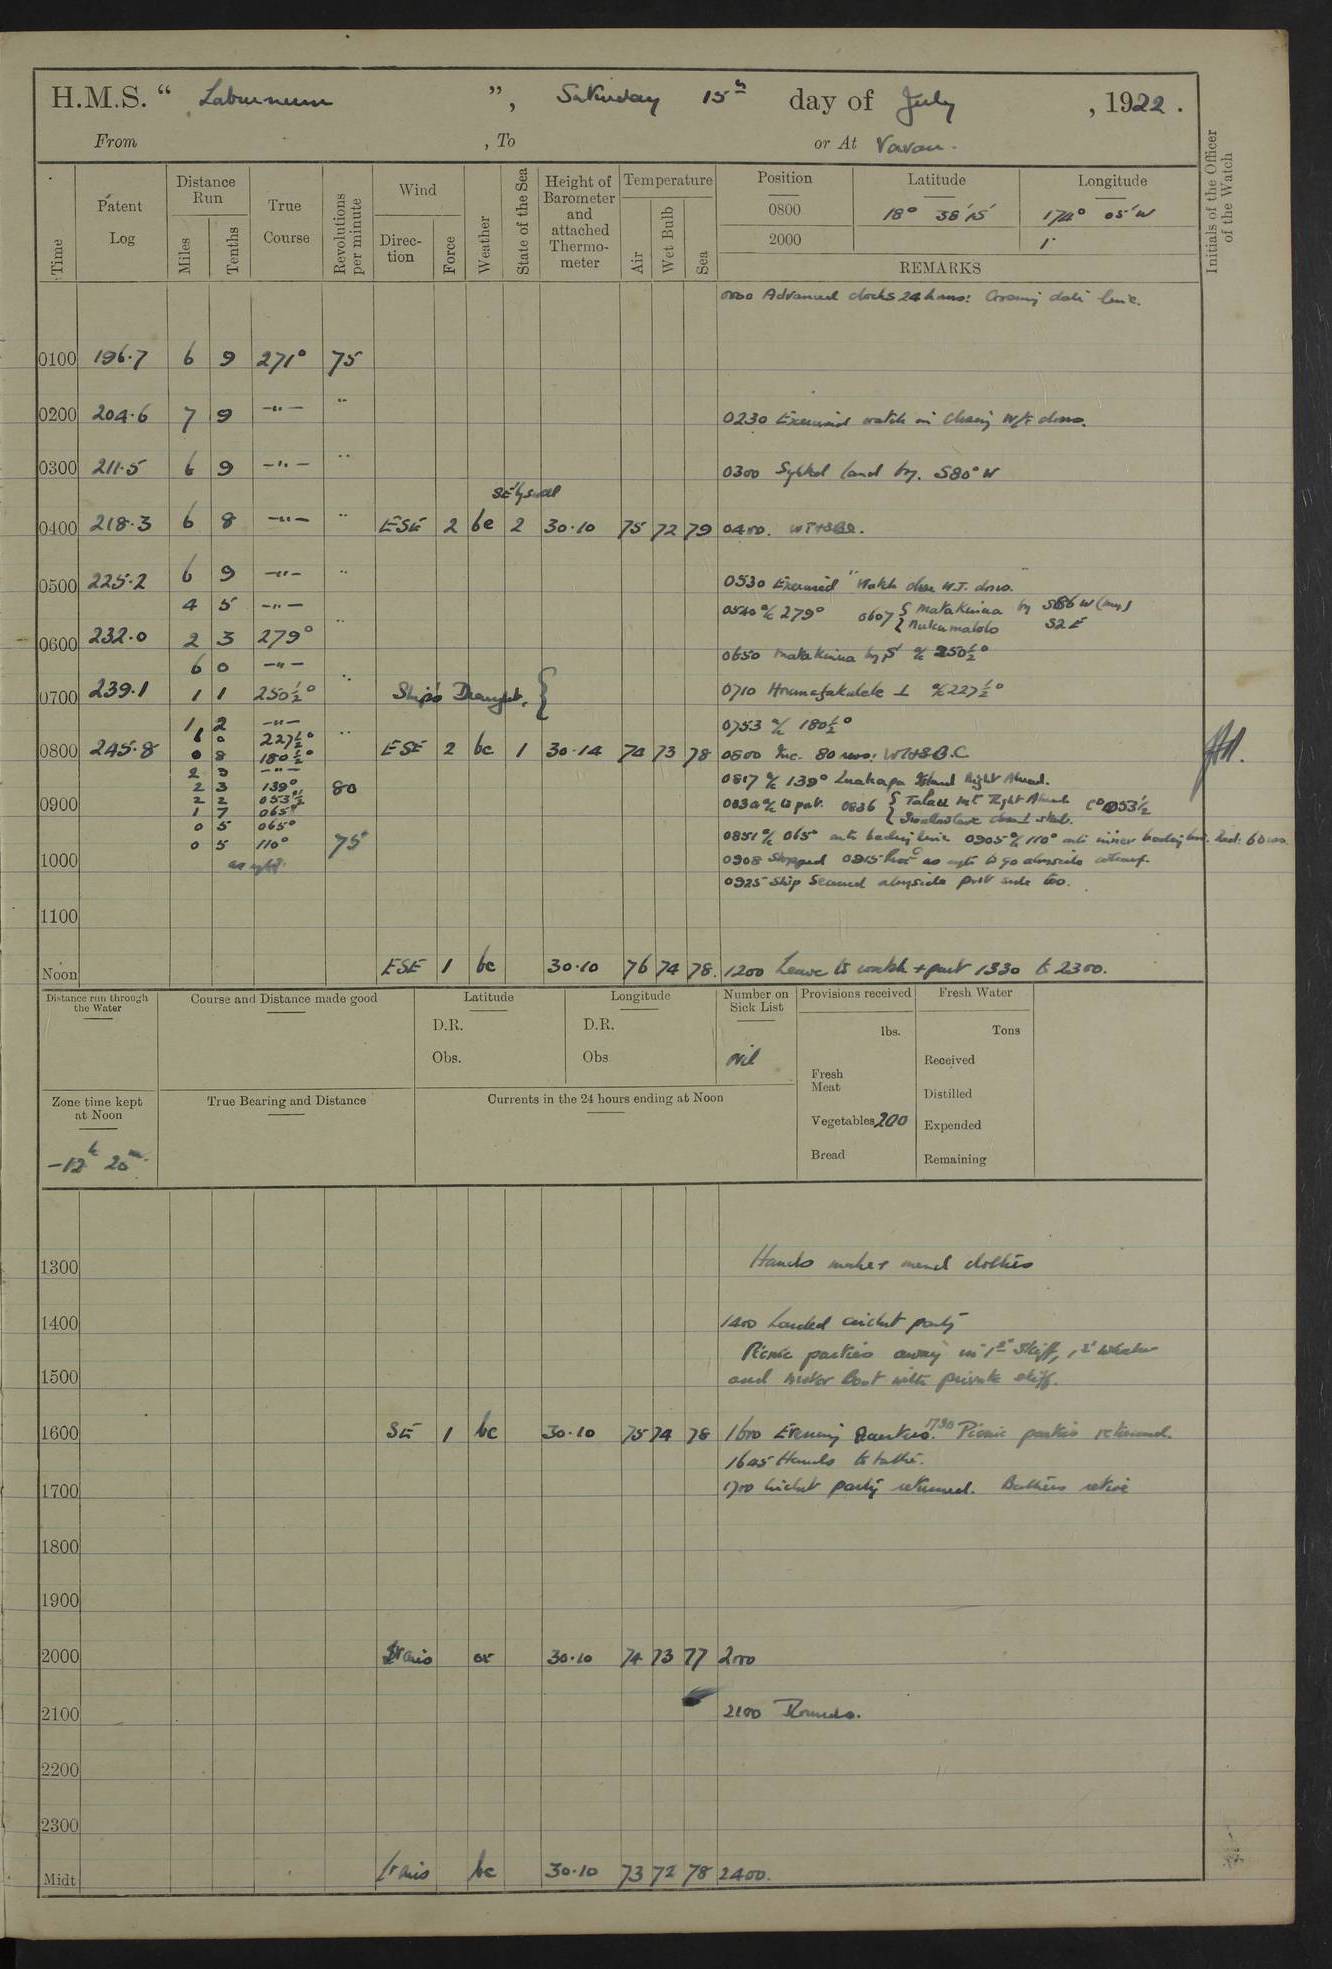 H.M.S. " Laburnum ", Saturday 15th day of July , 1922.
From , To or At Vavau.
Time
Patent Log
Distance Run
Miles
Tenths
True Course
Revolutions per minute
Wind
Direc-tion
Force
Weather
State of the Sea
Height of Barometer and attached Thermo-meter
Temperature
Air
Wet Bulb
Sea
Position Latitude Longitude
0800 18° 38' 15" 174° 05' W
2000
REMARKS
Initials of the Officer of the Watch
0000 Advanced clocks 24 hours: Crossing date line.
0100 196.7 6 9 271° 75
0200 204.6 7 9 —"— " 0230 Exercised watch in closing W/T doors.
0300 211.5 6 9 —"— " 0300 Sighted land bg. S80°W
SE'ly swell
0400 218.3 6 8 —"— " ESE 2 bc 2 30.10 75 72 79 0400.
0500 225.2 6 9 —"— " 0530 Exercised "Watch close W.T. doors."
4 5 —"— 0540 a/c 279° 0607 { Matakuina by S86 W (mag)
0600 232.0 2 3 279° " Nukumalolo S2E
6 0 —"— 0650 Matakuina by S' a/c 250½°
0700 239.1 1 1 250½° " Ship's Draught. { 0710 a/c 227½°
1 2 —"— 0753 a/c 180½°
6 0 227½°
0800 245.8 0 8 180½° " ESE 2 bc 1 30.14 74 73 78 0800 Inc. 80 revs:
2 3 —"—
2 3 139° 80 0817 a/c 139° Luakapa Island Right Ahead.
0900 2 2 053½ 0836 { Talau Mt Right Ahead Co 053½
1 7 065°
0 5 065° 0851 a/c 065° onto leading line 0905 a/c 110° onto inner leading line. Red: 60 revs
0 5 110° 75
1000 as reqte. 0908 Stopped 0915 Proc as reqte to go alongside wharf.
0925 Ship Secured alongside port side to.
1100
Noon ESE 1 bc 30.10 76 74 78. 1200 Leave to watch + part 1330 to 2300.
Distance run through the Water
Course and Distance made good
Latitude
D.R.
Obs.
Longitude
D.R.
Obs
Number on Sick List
Nil
Provisions received
lbs.
Fresh Meat
Vegetables 200
Bread
Fresh Water
Tons
Received
Distilled
Expended
Remaining
Zone time kept at Noon
-12h 20m.
True Bearing and Distance
Currents in the 24 hours ending at Noon
Hands make & mend clothes
1300
1400 1400 Landed cricket party
Picnic parties away in 1st Skiff, 1st Whaler
1500 and Motor Boat with private skiff.
1600 SE 1 bc 30.10 75 74 78 1600 Evening Quarters. 1730 Picnic parties returned.
1645 Hands to bathe.
1700 1700 Cricket party returned. Bathers retire
1800
1900
2000 Lt airs or 30.10 74 73 77 2000
2100 2100 Rounds.
2200
2300
Midt Lt airs bc 30.10 73 72 78 2400.